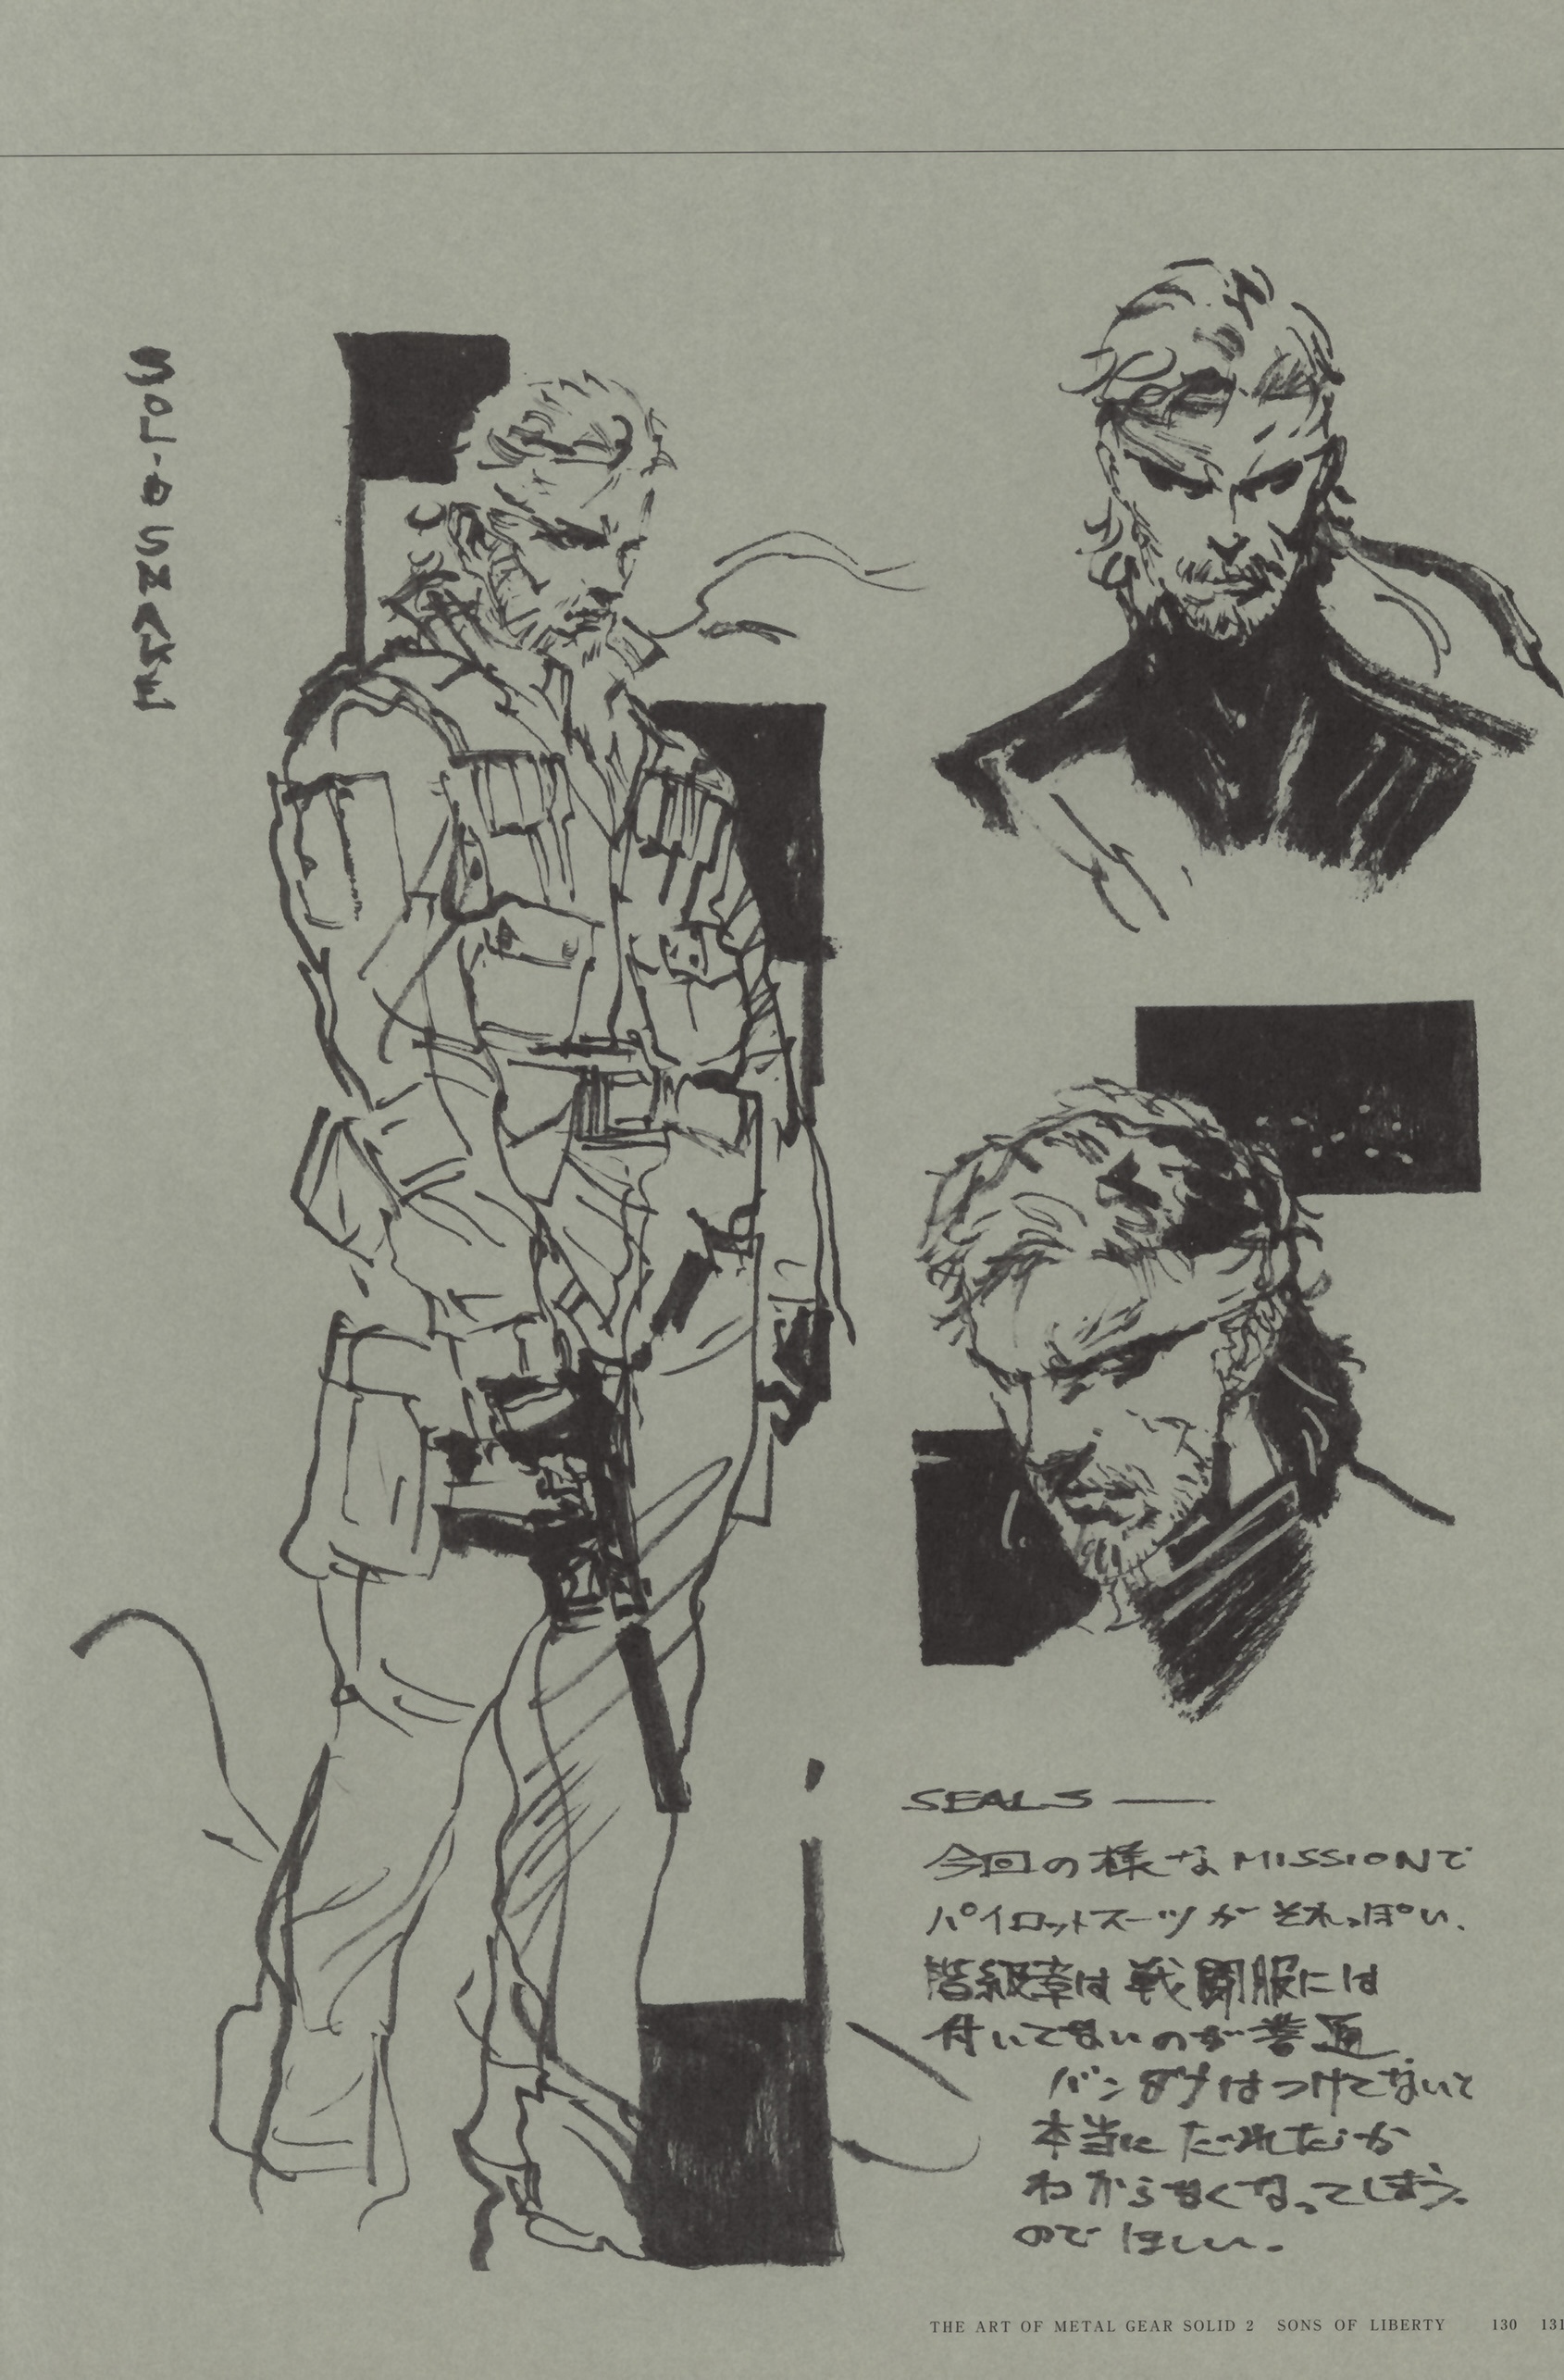 SOLID SNAKE
SEALS —
今回の様なMISSIONで
パイロットスーツがそれっぽい.
階級章は戦闘服には
付いてないのが普通
バンダナはつけてないと
本当にだれだか
わからなくなってしまう.
のでほしい.
THE ART OF METAL GEAR SOLID 2 SONS OF LIBERTY 130 131